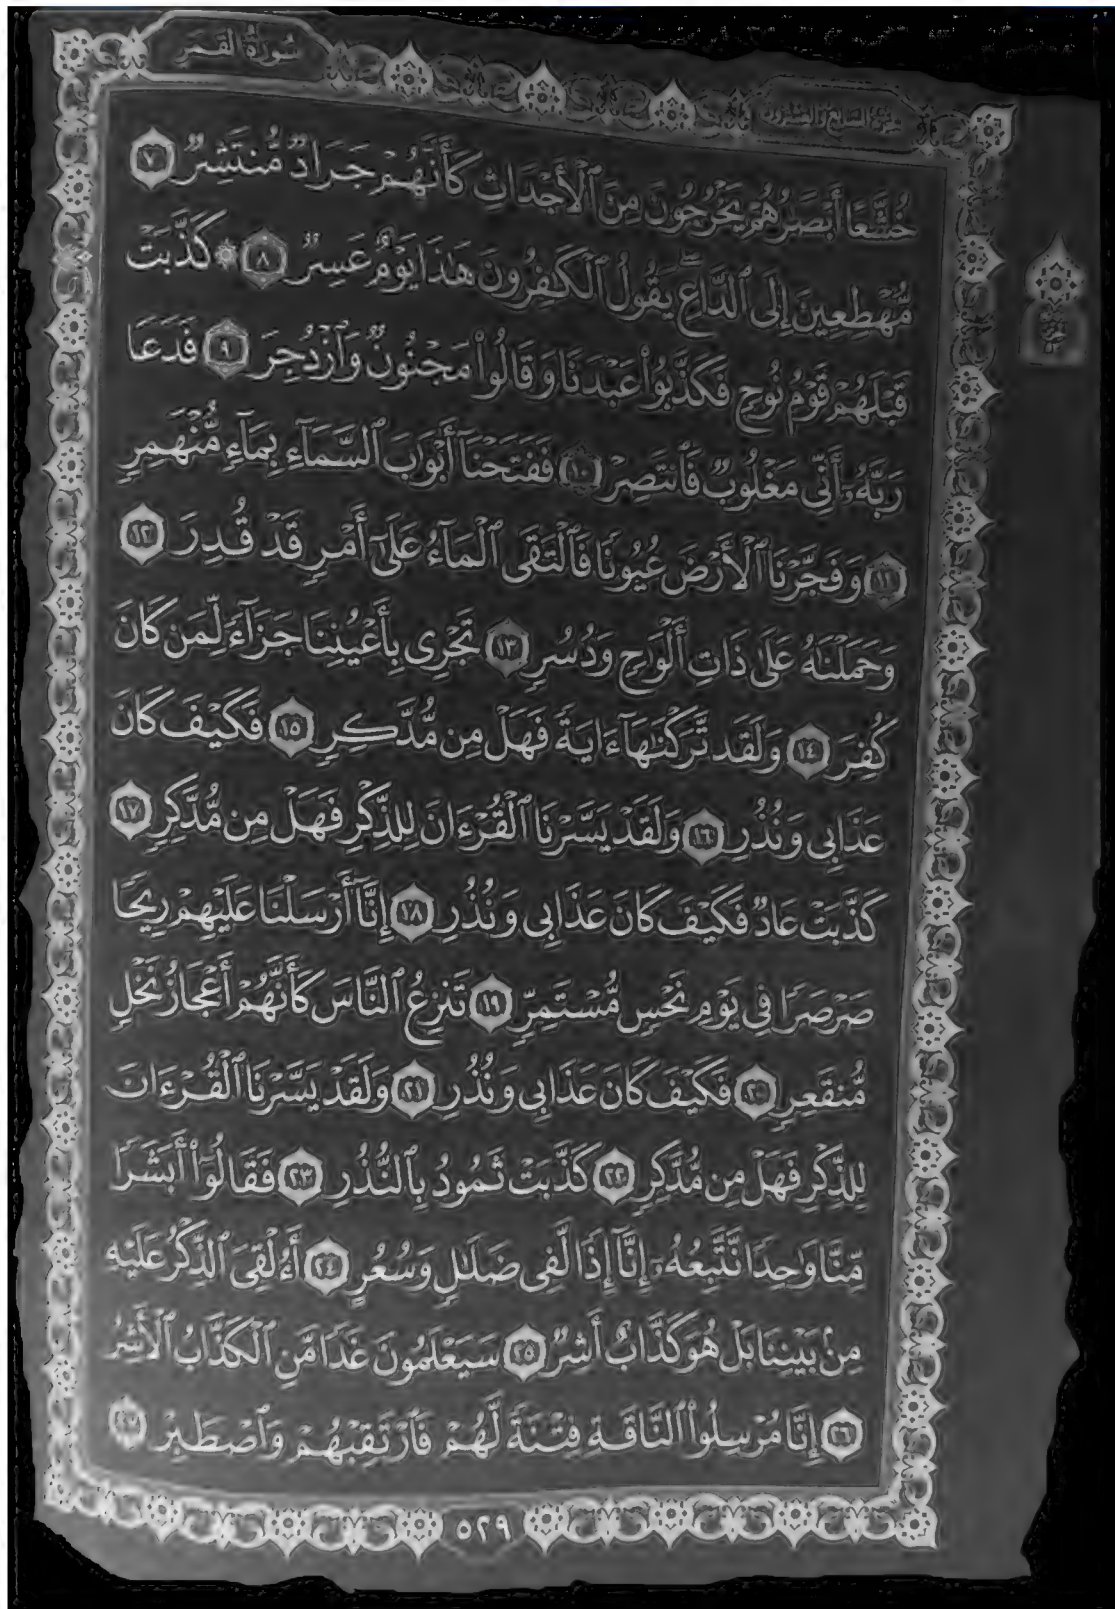 سُورَةُ القَمَرِ
الجُزْءُ السَّابِعُ وَالعِشْرُونَ
خُشَّعًا أَبْصَٰرُهُمْ يَخْرُجُونَ مِنَ ٱلْأَجْدَاثِ كَأَنَّهُمْ جَرَادٌ مُّنتَشِرٌ ٧
مُّهْطِعِينَ إِلَى ٱلدَّاعِ يَقُولُ ٱلْكَٰفِرُونَ هَٰذَا يَوْمٌ عَسِرٌ ٨ ۞ كَذَّبَتْ
قَبْلَهُمْ قَوْمُ نُوحٍ فَكَذَّبُوا۟ عَبْدَنَا وَقَالُوا۟ مَجْنُونٌ وَٱزْدُجِرَ ٩ فَدَعَا
رَبَّهُۥٓ أَنِّى مَغْلُوبٌ فَٱنتَصِرْ ١٠ فَفَتَحْنَآ أَبْوَٰبَ ٱلسَّمَآءِ بِمَآءٍ مُّنْهَمِرٍ
١١ وَفَجَّرْنَا ٱلْأَرْضَ عُيُونًا فَٱلْتَقَى ٱلْمَآءُ عَلَىٰٓ أَمْرٍ قَدْ قُدِرَ ١٢
وَحَمَلْنَٰهُ عَلَىٰ ذَاتِ أَلْوَٰحٍ وَدُسُرٍ ١٣ تَجْرِى بِأَعْيُنِنَا جَزَآءً لِّمَن كَانَ
كُفِرَ ١٤ وَلَقَد تَّرَكْنَٰهَآ ءَايَةً فَهَلْ مِن مُّدَّكِرٍ ١٥ فَكَيْفَ كَانَ
عَذَابِى وَنُذُرِ ١٦ وَلَقَدْ يَسَّرْنَا ٱلْقُرْءَانَ لِلذِّكْرِ فَهَلْ مِن مُّدَّكِرٍ ١٧
كَذَّبَتْ عَادٌ فَكَيْفَ كَانَ عَذَابِى وَنُذُرِ ١٨ إِنَّآ أَرْسَلْنَا عَلَيْهِمْ رِيحًا
صَرْصَرًا فِى يَوْمِ نَحْسٍ مُّسْتَمِرٍّ ١٩ تَنزِعُ ٱلنَّاسَ كَأَنَّهُمْ أَعْجَازُ نَخْلٍ
مُّنقَعِرٍ ٢٠ فَكَيْفَ كَانَ عَذَابِى وَنُذُرِ ٢١ وَلَقَدْ يَسَّرْنَا ٱلْقُرْءَانَ
لِلذِّكْرِ فَهَلْ مِن مُّدَّكِرٍ ٢٢ كَذَّبَتْ ثَمُودُ بِٱلنُّذُرِ ٢٣ فَقَالُوٓا۟ أَبَشَرًا
مِّنَّا وَٰحِدًا نَّتَّبِعُهُۥٓ إِنَّآ إِذًا لَّفِى ضَلَٰلٍ وَسُعُرٍ ٢٤ أَءُلْقِىَ ٱلذِّكْرُ عَلَيْهِ
مِنۢ بَيْنِنَا بَلْ هُوَ كَذَّابٌ أَشِرٌ ٢٥ سَيَعْلَمُونَ غَدًا مَّنِ ٱلْكَذَّابُ ٱلْأَشِرُ
٢٦ إِنَّا مُرْسِلُوا۟ ٱلنَّاقَةِ فِتْنَةً لَّهُمْ فَٱرْتَقِبْهُمْ وَٱصْطَبِرْ ٢٧
٥٢٩